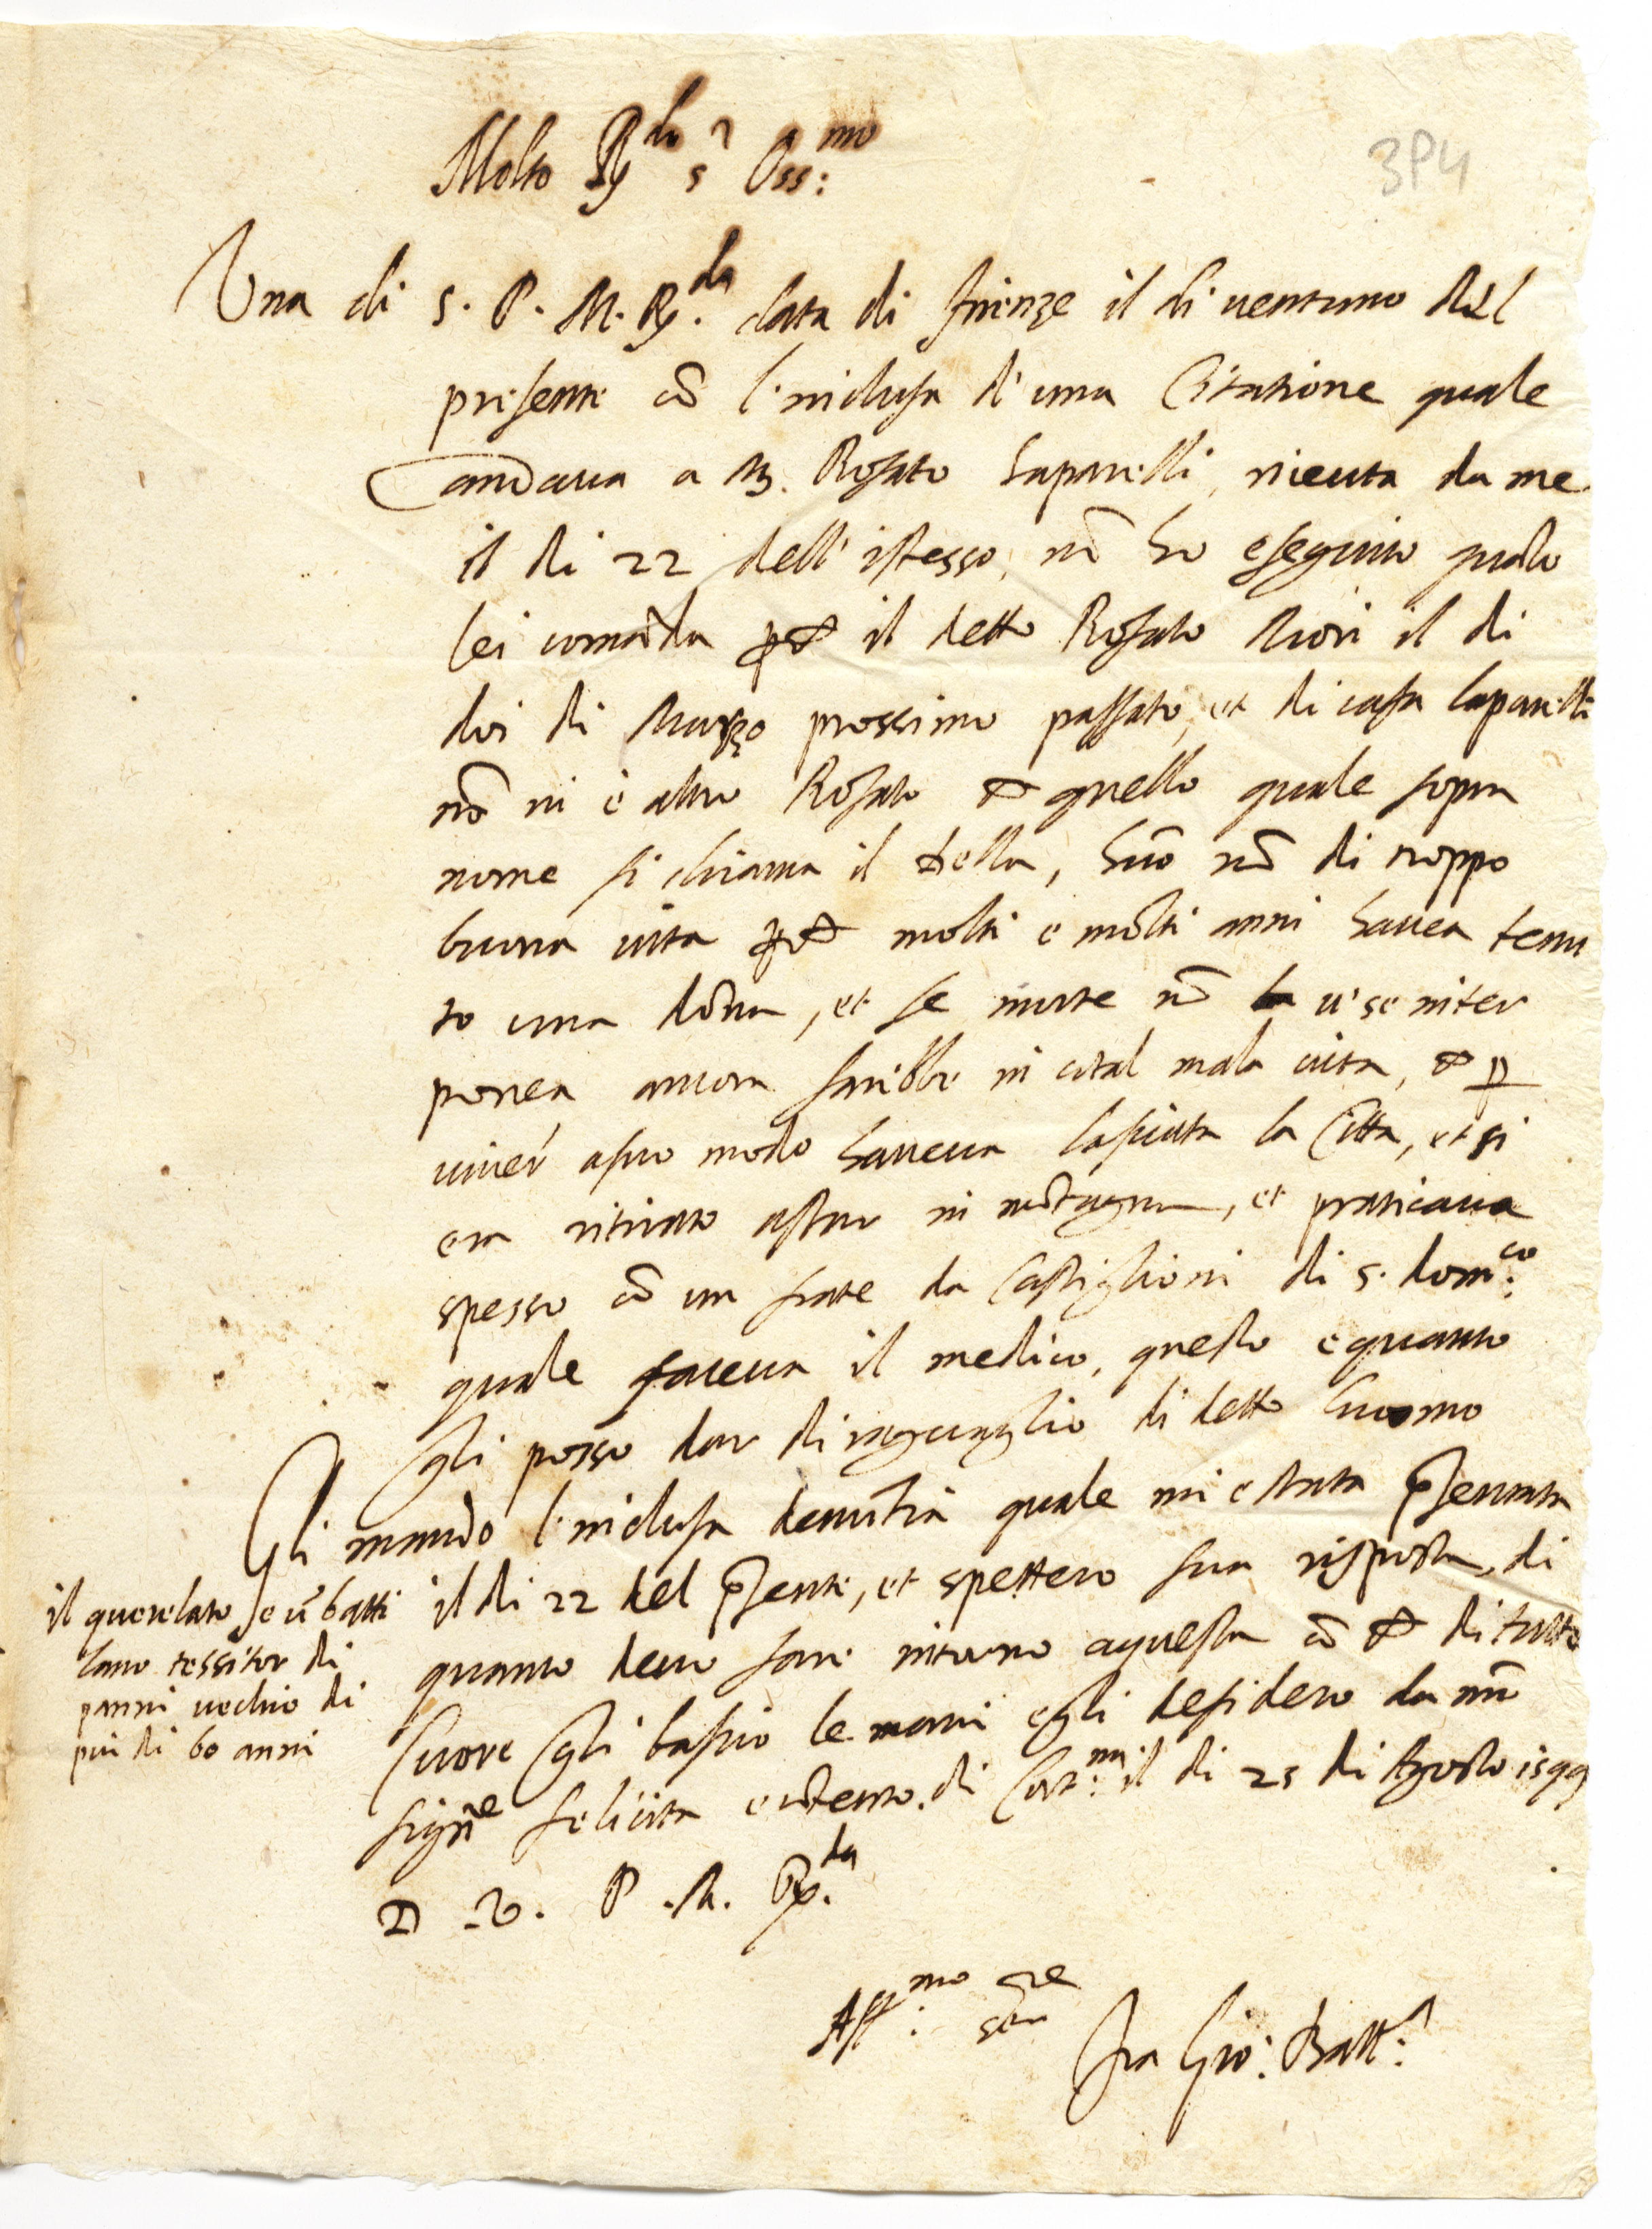 Molto R.do s.r Oss:mo
3P4
Una di S. P. M. R.da data di firenze il di ventuno del
presente cõ l'inclusa d'una Citatione quale
andava a M. Rosato Laparelli, riceuta da me
il di 22 dell'istesso, nõ ho eseguito quãto
lei comãda il detto Rosato Mori il di
doi di Marzo prossimo passato, et di casa Laparelli
nõ vi è altro Rosato quello quale sopra
nome si chiama il della, huõ nõ di troppo
buona vita molti e molti anni havea tenu
to una dõna, et se morte nõ vi se inter
ponea ancora sarebbe in cotal mala vita,
viver asuo modo haveva lasciata la Citta, et si
era ritirato astar in mõtagna, et praticava
spesso cõ un frate da Castiglioni di s. dom:co
quale faceva il medico, questo e quanto
gli posso dar di raguaglio di detto huomo
Gli mando l'inclusa denũtia quale mi e stata p̃sentata
il di 22 del p̃sente, et spettero sua risposta, di
quanto devo fare intorno aquesta cõ di tutto
Cuore Gli bascio le mani e gli desidero da nr̃o
sign.re felicita e cõtento. di Cort:na il di 25 di Agosto 1599
D. V. P. M. R.da
Aff:mo ser.re
fra Gio: Batt:a
il querelato e ũ batti
lano tessitor di
panni vechio di
piu di 60 anni